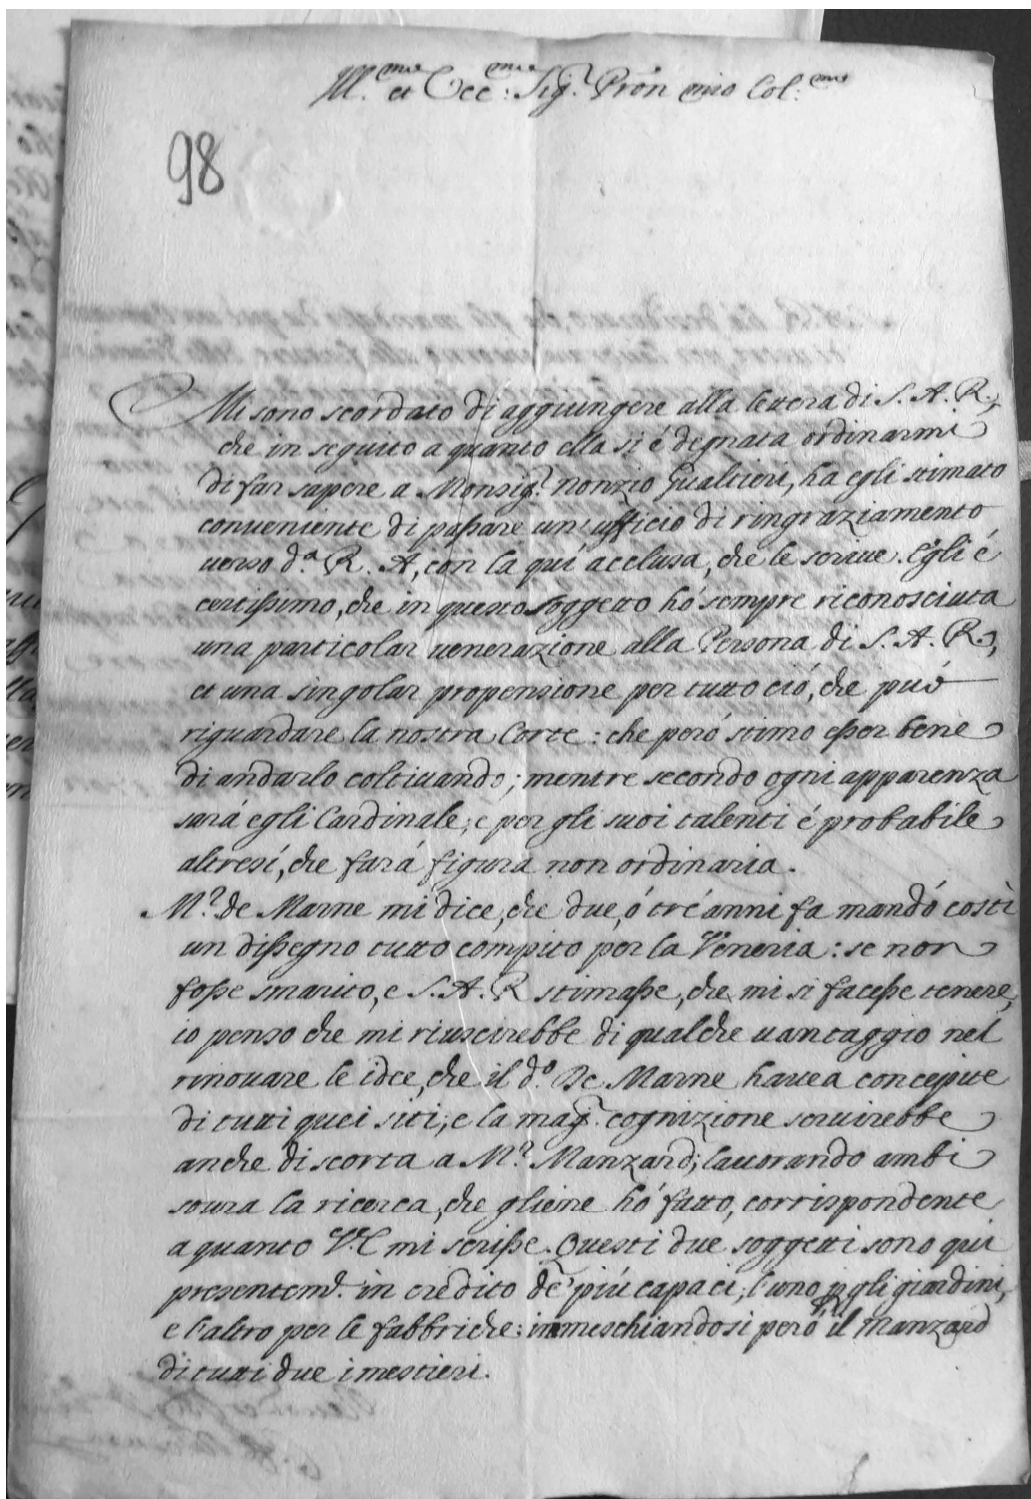 Ill.mo et Ecc.mo Sig.r Pron mio Col.mo
98
Mi sono scordato di aggiungere alla lettera di S. A. R.,
che in seguito a quanto ella si é degnata ordinarmi
di far sapere a Monsig.r nonzio Gualtieri, ha egli stimato
conueniente di passare un' ufficio di ringraziamento
uerso d.a R. A, con la quí acclusa, che le scriue. Egli é
certissimo, che in questo soggetto hó sempre riconosciuta
una particolar uenerazione alla Persona di S. A. R.,
et una singolar propensione per tutto ció, che puó
riguardare la nostra Corte: che peró stimo esser bene
di andarlo coltiuando; mentre secondo ogni apparenza
sará egli Cardinale; e per gli suoi talenti é probabile
altresí, che fará figura non ordinaria.
M.r de Marne mi dice, che due, ó tré anni fa mandó costì
un dissegno tutto compito per la Veneria: se non
fosse smarito, e S. A. R stimasse, che mi si facesse tenere,
io penso che mi riuscirebbe di qualche uantaggio nel
rinouare le idee, che il d.o De Marne hauea concepite
di tutti quei siti; e la mag.r cognizione seruirebbe
anche di scorta a M.r Manzard; lauorando ambi
soura la ricerca, che gliene hó fatto, corrispondente
a quanto V. E mi scrisse. Questi due soggetti sono qui
presentem.e in credito de' piú capaci; l'uno p gli giardini,
e l'altro per le fabbriche: immeschiandosi peró il Manzard
di tutti due i mestieri.